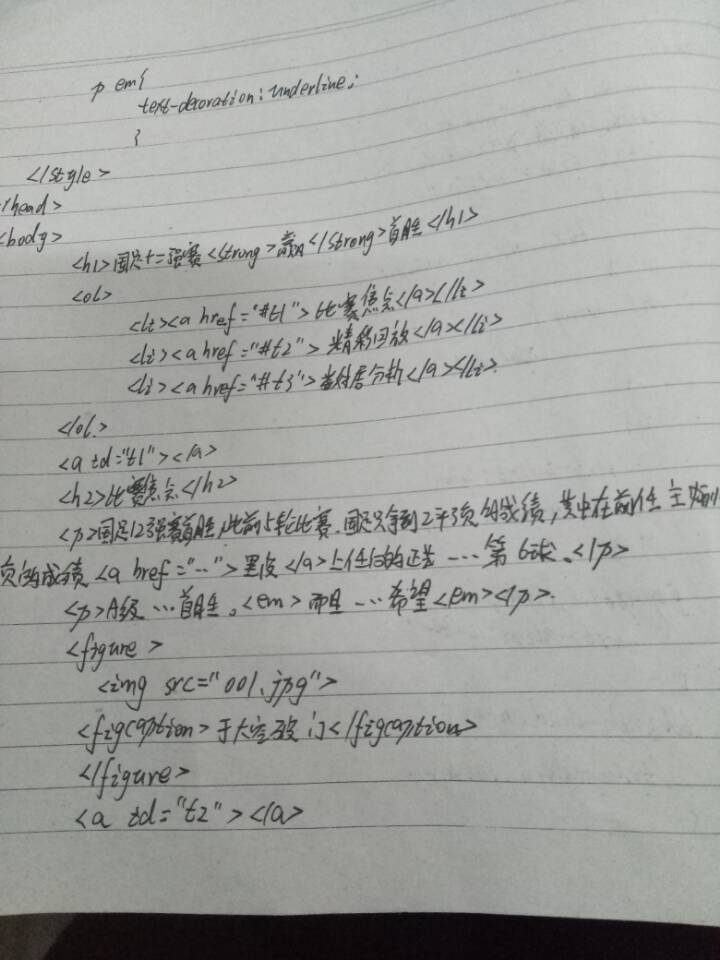 p em{
text-decoration: underline;
}
</style>
</head>
<body>
<h1>国足十二强赛<strong>赢</strong>首胜</h1>
<ol>
<li><a href="#t1">比赛焦点</a></li>
<li><a href="#t2">精彩回放</a></li>
<li><a href="#t3">分析</a></li>
</ol>
<a id="t1"></a>
<h2>比赛焦点</h2>
<p>国足12强赛首胜,此前5轮比赛.国足只拿到2平3负的成绩,其中在前任主帅
负的成绩<a href="…">里皮</a>上任后的正 …… 第6球。</p>
<p>A级…首胜。<em>而且…希望<em></p>.
<figure>
<img src="001.jpg">
<figcaption>于大宝破门</figcaption>
</figure>
<a id="t2"></a>